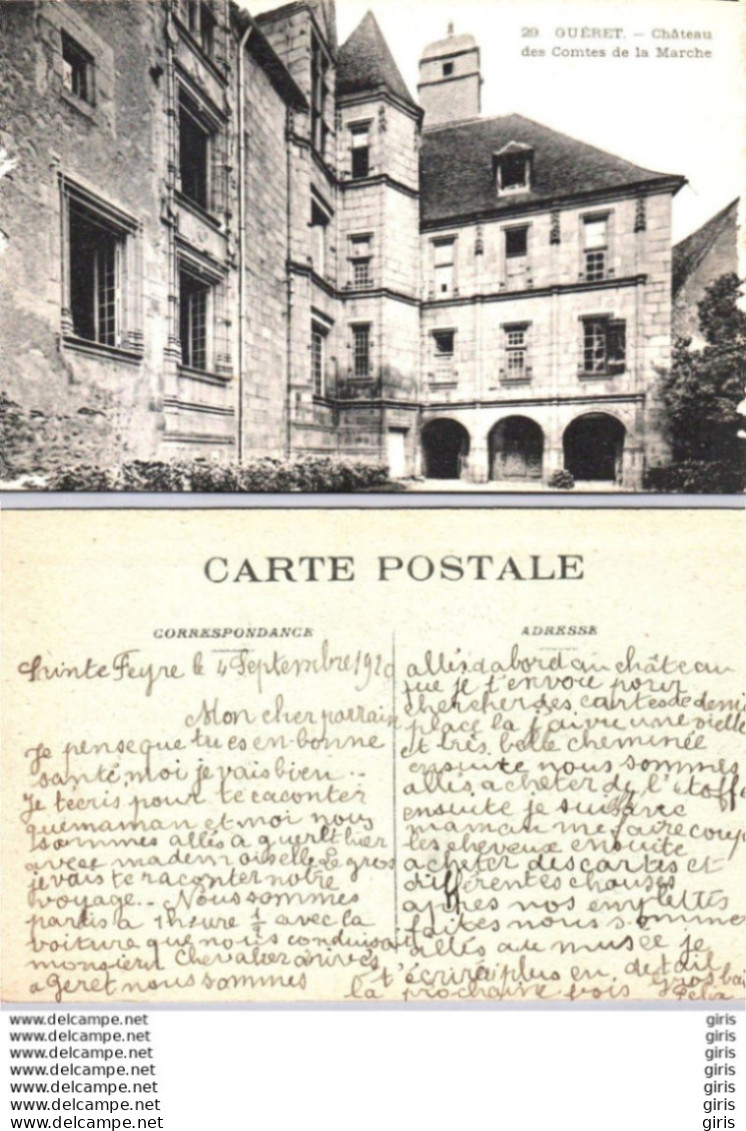 29 GUÉRET. — Château
des Comtes de la Marche
CARTE POSTALE
CORRESPONDANCE
Sainte Feyre le 4 Septembre 1920
Mon cher parrain
Je pense que tu es en bonne
santé, moi je vais bien..
Je tecris pour te raconter
que maman et moi nous
sommes allés a guerlt hier
avec mademoiselle Le gros
je vais te raconter notre
voyage.. Nous sommes
partis a 1 heure 1/2 avec la
voiture que nous conduisait
monsieur Chevalier arrivés
a Geret nous sommes
ADRESSE
allés d abord au château
que je t'envoie pour
chercher des cartes de demi
place la j'ai vu une vielle
et très belle cheminée
ensuite nous sommes
allés acheter de l'étoffe
ensuite je suis avec
maman me faire coup
les cheveux ensuite
acheter des cartes et
différentes chauses
apres nos emplettes
faites nous sommes
allés au musée je
t'écrirai plus en detail
la prochaine fois Gros bai
Felix
www.delcampe.net
www.delcampe.net
www.delcampe.net
www.delcampe.net
www.delcampe.net
www.delcampe.net
www.delcampe.net
giris
giris
giris
giris
giris
giris
giris